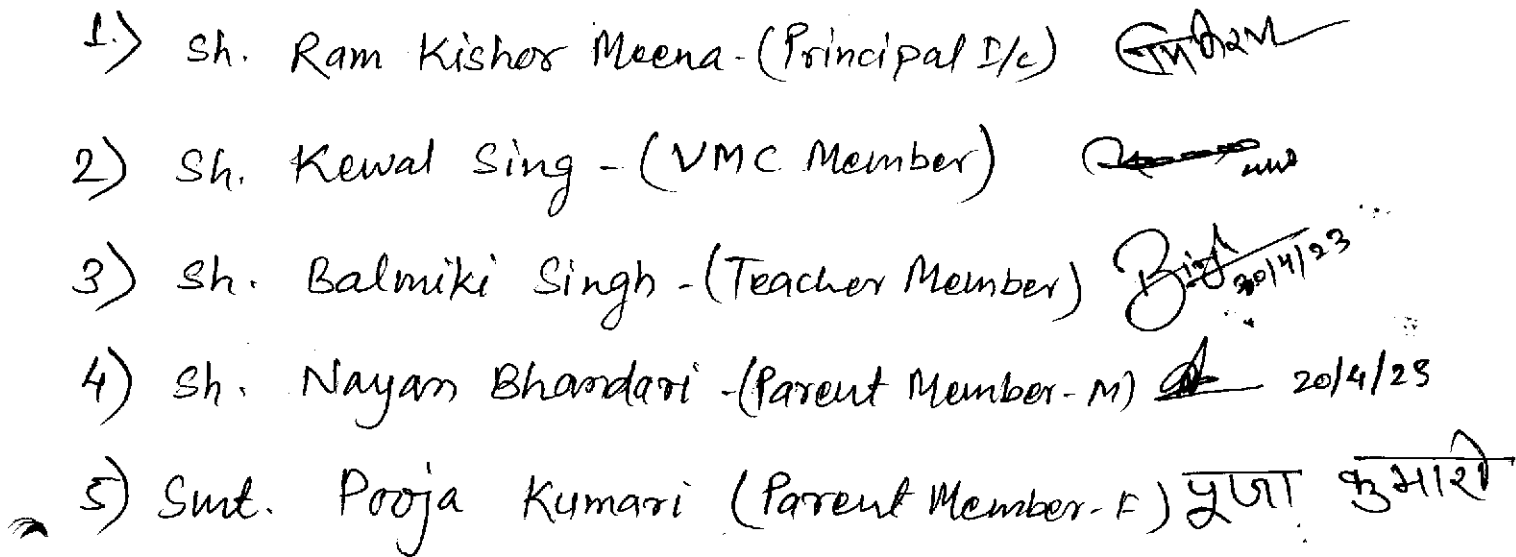 1.) Sh. Ram Kishor Meena - (Principal I/c)
2) Sh. Kewal Sing - (VMC Member)
3) Sh. Balmiki Singh - (Teacher Member) 20/4/23
4) Sh. Nayan Bhandari - (Parent Member - M) 20/4/23
5) Smt. Pooja Kumari (Parent Member - F) पूजा कुमारी